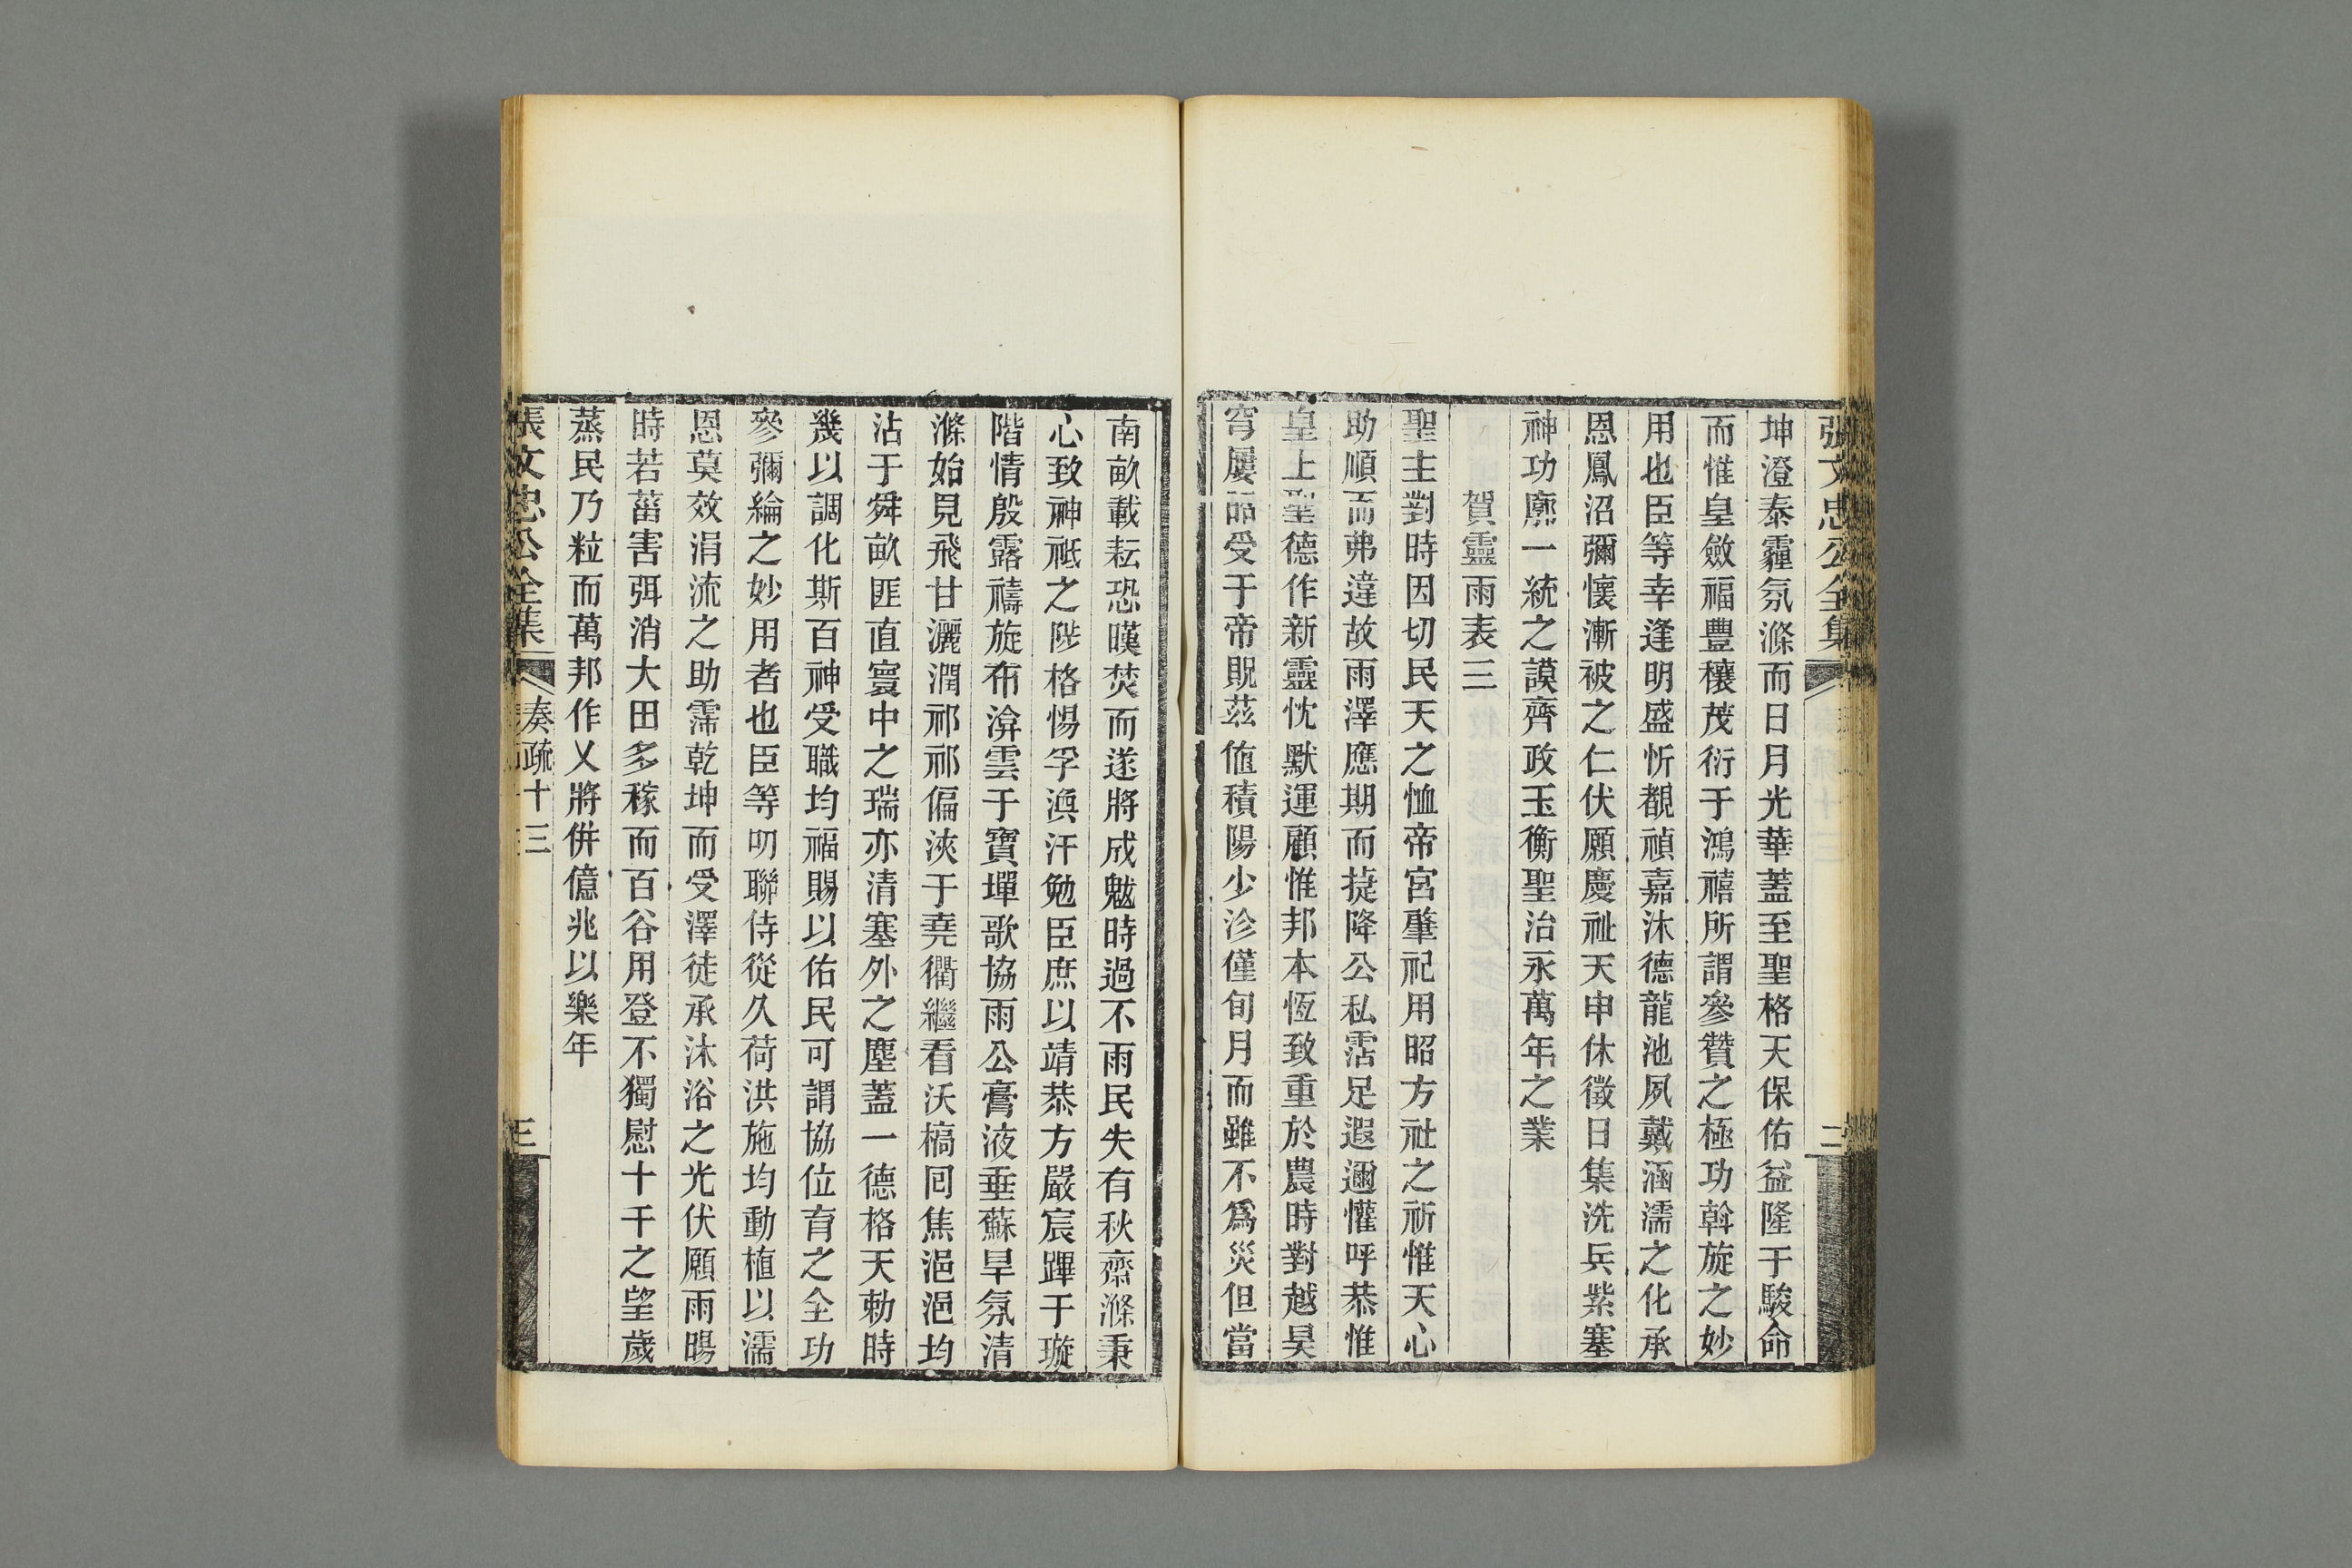 張文忠公全集
二
坤澄泰霾氛滌而日月光華蓋至聖格天保佑益隆于駿命
而惟皇斂福豐穰茂衍于鴻禧所謂參贊之極功斡旋之妙
用也臣等幸逢明盛忻覩禎嘉沐德龍池夙戴涵濡之化承
恩鳳沼彌懷漸被之仁伏願慶祉天申休徵日集洗兵紫塞
神功廓一統之謨齊政玉衡聖治永萬年之業
賀靈雨表三
聖主對時因切民天之恤帝宮肇祀用昭方社之祈惟天心
助順而弗違故雨澤應期而㨗降公私霑足遐邇懽呼恭惟
皇上聖德作新靈忱默運顧惟邦本恆致重於農時對越昊
穹屢品受于帝貺茲值積陽少沴僅旬月而雖不爲災但當
南畝載耘恐暵焚而遂將成魃時過不雨民失有秋齋滌秉
心致神祗之陟格惕孚渙汗勉臣庶以靖恭方嚴宸蹕于璇
階情殷露禱旋布渰雲于寶墠歌協雨公膏液垂蘇旱氛清
滌始見飛甘灑潤祁祁偏浹于堯衢繼看沃槁囘焦浥浥均
沾于舜畝匪直寰中之瑞亦清塞外之塵蓋一德格天勅時
幾以調化斯百神受職均福賜以佑民可謂協位育之全功
參彌綸之妙用者也臣等叨聯侍從久荷洪施均動植以濡
恩莫效涓流之助霈乾坤而受澤徒承沐浴之光伏願雨暘
時若菑害弭消大田多稼而百谷用登不獨慰十千之望歲
蒸民乃粒而萬邦作乂將併億兆以樂年
張文忠公全集
奏疏十三
三